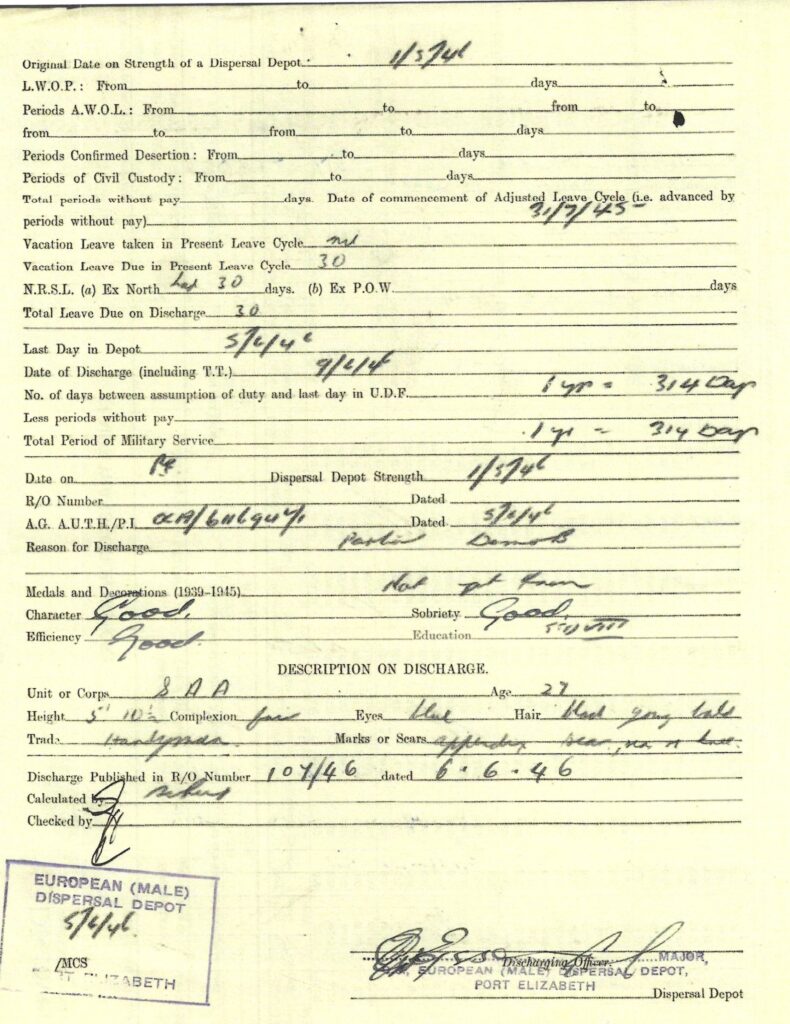 Original Date on Strength of a Dispersal Depot 1/5/46
L.W.O.P.: From to days
Periods A.W.O.L.: From to from to
from to from to days
Periods Confirmed Desertion: From to days
Periods of Civil Custody: From to days
Total periods without pay days. Date of commencement of Adjusted Leave Cycle (i.e. advanced by
periods without pay) 31/7/45
Vacation Leave taken in Present Leave Cycle nil
Vacation Leave Due in Present Leave Cycle 30
N.R.S.L. (a) Ex North had 30 days. (b) Ex P.O.W. days
Total Leave Due on Discharge 30
Last Day in Depot 5/6/46
Date of Discharge (including T.T.) 9/6/46
No. of days between assumption of duty and last day in U.D.F. 1 yr = 314 Days
Less periods without pay
Total Period of Military Service 1 yr = 314 Days
Date on Dispersal Depot Strength 1/5/46
R/O Number Dated
A.G. A.U.T.H./P.I. Dated 5/6/46
Reason for Discharge Demob
Medals and Decorations (1939-1945) Not yet known
Character Good. Sobriety Good.
Efficiency Good. Education STD VIII
DESCRIPTION ON DISCHARGE.
Unit or Corps S A A Age 27
Height 5' 10½ Complexion fair Eyes blue Hair black going bald
Trade Handyman Marks or Scars appendix scar,
Discharge Published in R/O Number 107/46 dated 6.6.46
Calculated by
Checked by
EUROPEAN (MALE)
DISPERSAL DEPOT
5/6/46
/MCS
PORT ELIZABETH
Discharging Officer. MAJOR,
EUROPEAN (MALE) DISPERSAL DEPOT,
PORT ELIZABETH
Dispersal Depot